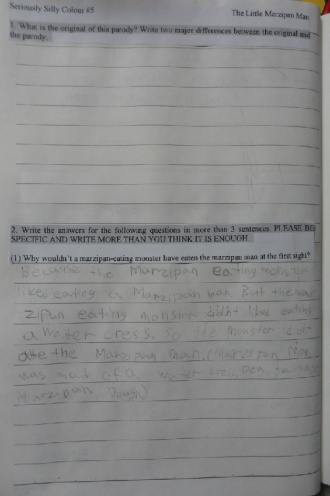 Seriously Silly Colour #5 The Little Marzipan Man
1. What is the original of this parody? Write two major differences between the original and
the parody.
2. Write the answers for the following questions in more than 3 sentences. PLEASE BE
SPECIFIC AND WRITE MORE THAN YOU THINK IT IS ENOUGH.
(1) Why wouldn't a marzipan-eating monster have eaten the marzipan man at the first sight?
Because the Marzipan Eating monster
liked eating a Marzipan man. But the mar
zipan eating monster didn't liked eating
a water cress. So the monster didn't
ate the Marzipan man. (Marzipan Man
was mad of a water cress,
Marzipan Dough)